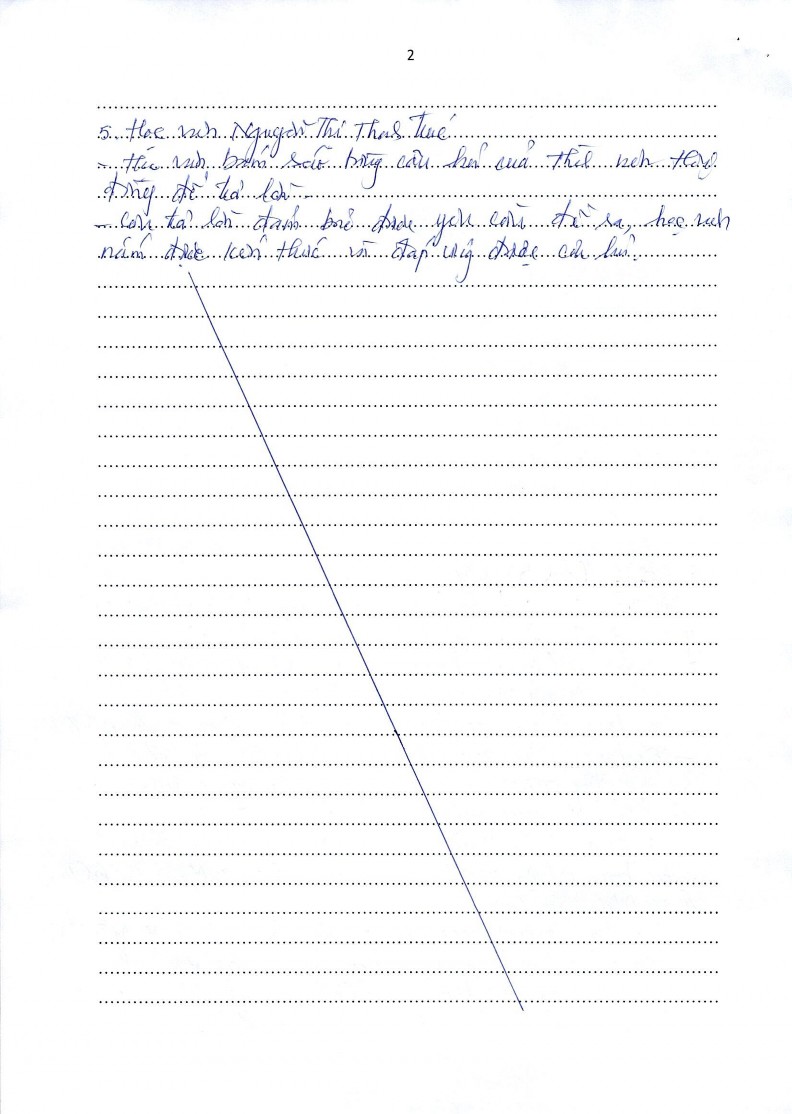 2
5. Học sinh Nguyễn Thị Thanh
- Thí sinh bám sát từng câu hỏi của thí sinh
dùng để trả lời.
- Câu trả lời đảm bảo được yêu cầu đề ra, học sinh
nắm được kiến thức và đáp ứng được câu hỏi.